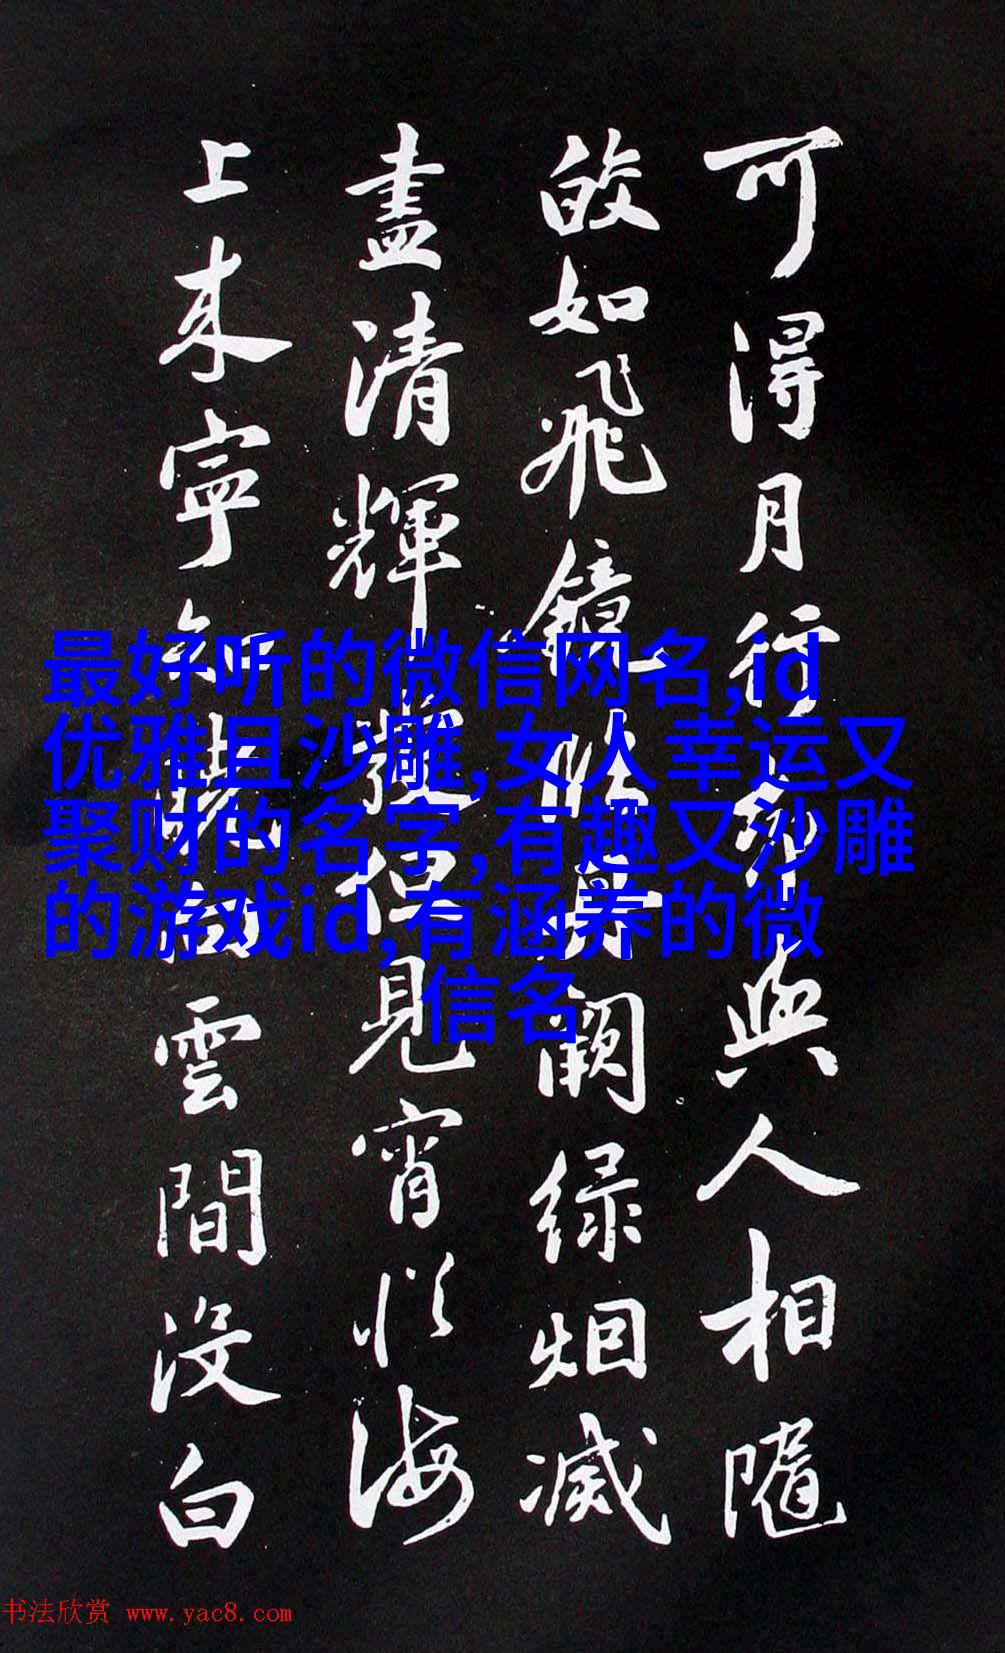 可得月行却與人相隨
皎如飛鏡臨丹闕绿烟滅
盡清輝發但見宵從海
上来寧知曉向雲間没白
最好听的微信网名,id
优雅且沙雕,女人幸运又
聚财的名字,有趣又沙雕
的游戏id,有涵养的微
信名
书法欣赏 www.yac8.com